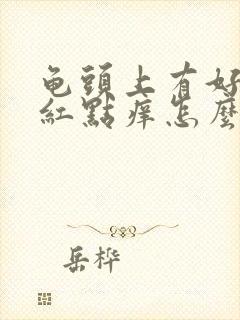 龟頭上有好
紅點痒怎麼
岳桦